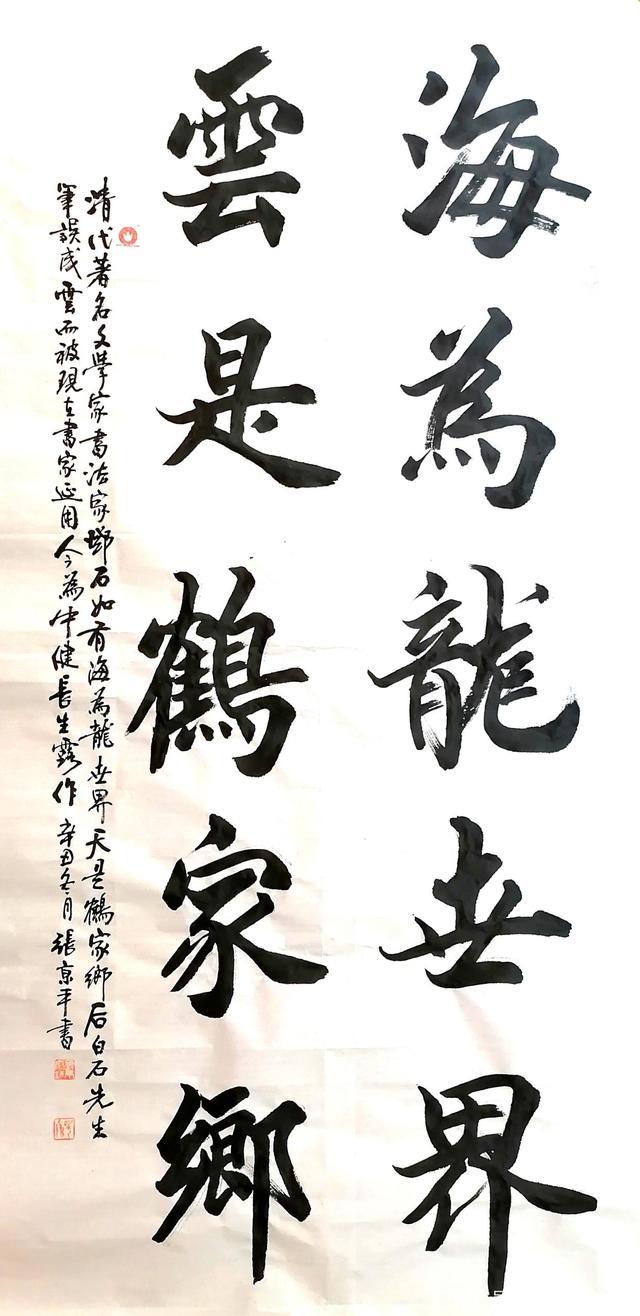 海為龍世界
雲是鶴家鄉
清代著名文學家書法家鄧石如有海為龍世界天是鶴家鄉后白石先生
筆誤成雲而被現在書家延用今為中健長生露作辛丑冬月張京平書